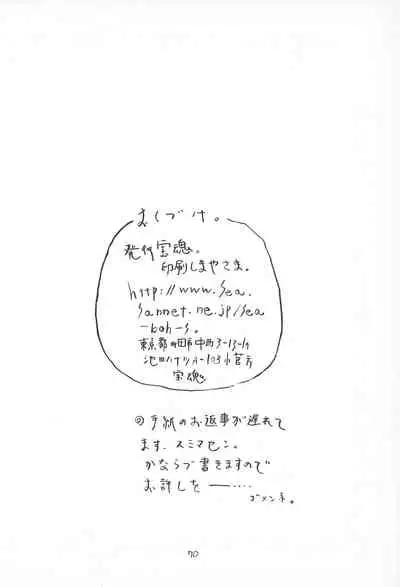 おくづけ。
発行 宝魂。
印刷 しまやさま。
http://www.sea.
sannet.ne.jp/sea
-boh-s.
東京都町田市中町3-13-14
池田ハイツA-103小菅方
宝魂
◎手紙のお返事が遅れて
ます、スミマセン。
かならづ書きますので
お許しを——‥‥
ゴメンネ。
70